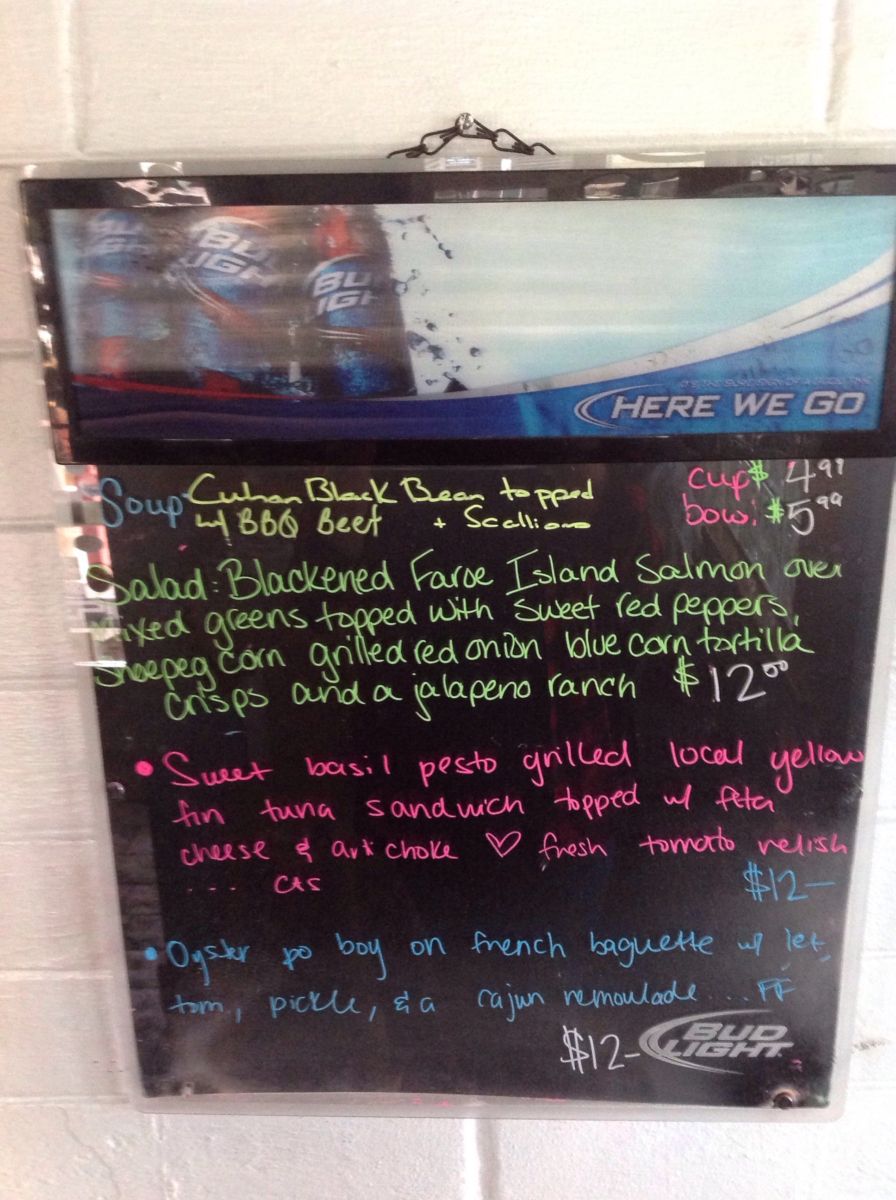 BUD LIGHT
BUD LIGHT
HERE WE GO
Soup Cuban Black Bean topped cup $4.99
w/ BBQ Beef + Scallions bowl $5.99
Salad: Blackened Faroe Island Salmon over
mixed greens topped with sweet red peppers,
shoepeg corn grilled red onion blue corn tortilla
crisps and a jalapeno ranch $12.00
• Sweet basil pesto grilled local yellow
fin tuna sandwich topped w/ feta
cheese & artichoke ♡ fresh tomato relish
.... cts $12—
• Oyster po boy on french baguette w/ let,
tom, pickle, & a cajun remoulade .... FF
$12—
BUD LIGHT